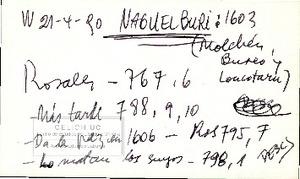 W 21-4-90 NAGUELBURI : 1603
(Molchén,
Bureo y
Loncotaru)
Rosales - 767, 6
- Más tarde 788, 9, 10
CELICH UC
- Da la paz en 1606 - Ros 795, 7
- Lo matan los suyos - 798, 1